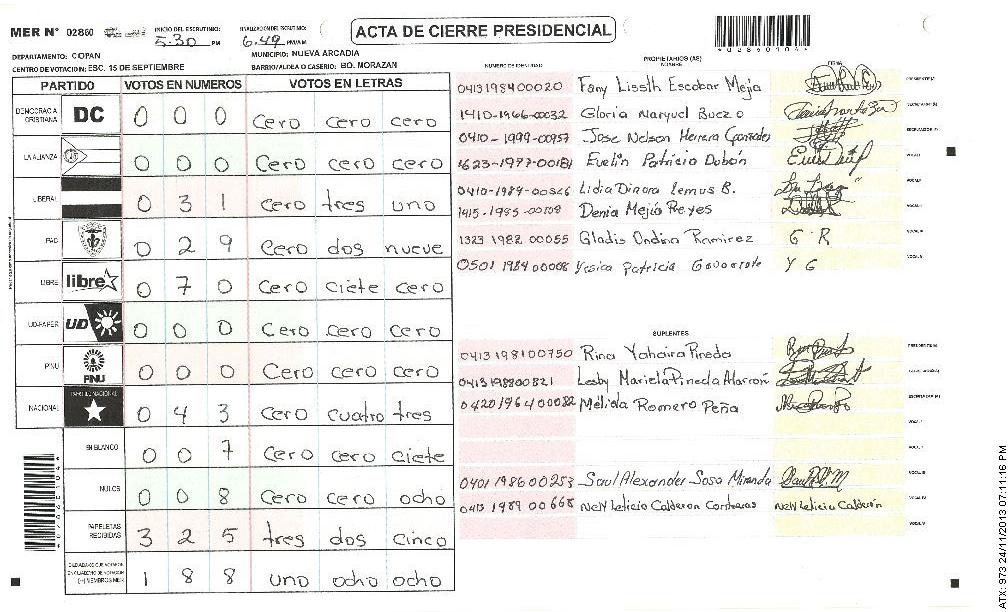 MER Nº 02860
INICIO DEL ESCRUTINIO: 5:30 PM
FINALIZACION DEL ESCRUTINIO: 6:49 PM/AM
ACTA DE CIERRE PRESIDENCIAL
*02860104*
DEPARTAMENTO: COPAN
MUNICIPIO: NUEVA ARCADIA
CENTRO DE VOTACION: ESC. 15 DE SEPTIEMBRE
BARRIO/ALDEA O CASERIO: BO. MORAZAN
PARTIDO VOTOS EN NUMEROS VOTOS EN LETRAS
DEMOCRACIA CRISTIANA DC 0 0 0 cero cero cero
LA ALIANZA 0 0 0 cero cero cero
LIBERAL 0 3 1 cero tres uno
PAC 0 2 9 cero dos nueve
LIBRE libre 0 7 0 cero ciete cero
UD-FAPER UD 0 0 0 cero cero cero
PINU PINU 0 0 0 cero cero cero
NACIONAL PARTIDO NACIONAL 0 4 3 cero cuatro tres
EN BLANCO 0 0 7 cero cero ciete
NULOS 0 0 8 cero cero ocho
PAPELETAS RECIBIDAS 3 2 5 tres dos cinco
CIUDADANOS QUE VOTARON EN CUADERNO DE VOTACION (+) MIEMBROS MER 1 8 8 uno ocho ocho
PROPIETARIOS (AS)
NUMERO DE IDENTIDAD NOMBRE FIRMA
0413198400020 Fany Lissth Escobar Mejia PRESIDENTE(A)
1410-1966-00032 Gloria Maryuel Buezo SECRETARIO(A)
0410-1999-00957 Jose Nelson Herrera ESCRUTADOR(A)
1623-1977-00181 Evelin Patricia Dubón VOCAL I
0410-1984-00526 Lidia Dinora Lemus B. VOCAL II
1415-1985-00108 Denia Mejía Reyes
1323 1982 00055 Gladis Ondina Ramirez G R
0501 1984 00008 Yesica Patricia Y G
SUPLENTES
0413 198100750 Rina Yahaira Pineda PRESIDENTE(A)
0413 198800821 Lesby Mariela Pineda Alarcón SECRETARIO(A)
0420 1964 00082 Mélida Romero Peña ESCRUTADOR(A)
VOCAL I
VOCAL II
0401 198600253 Saul Alexander Sosa Miranda VOCAL III
0413 1989 00668 Nelly Leticia Calderon Contreras Nelly Leticia Calderón VOCAL IV
VOCAL V
*02860104*
ATX: 973 24/11/2013 07:11:16 PM